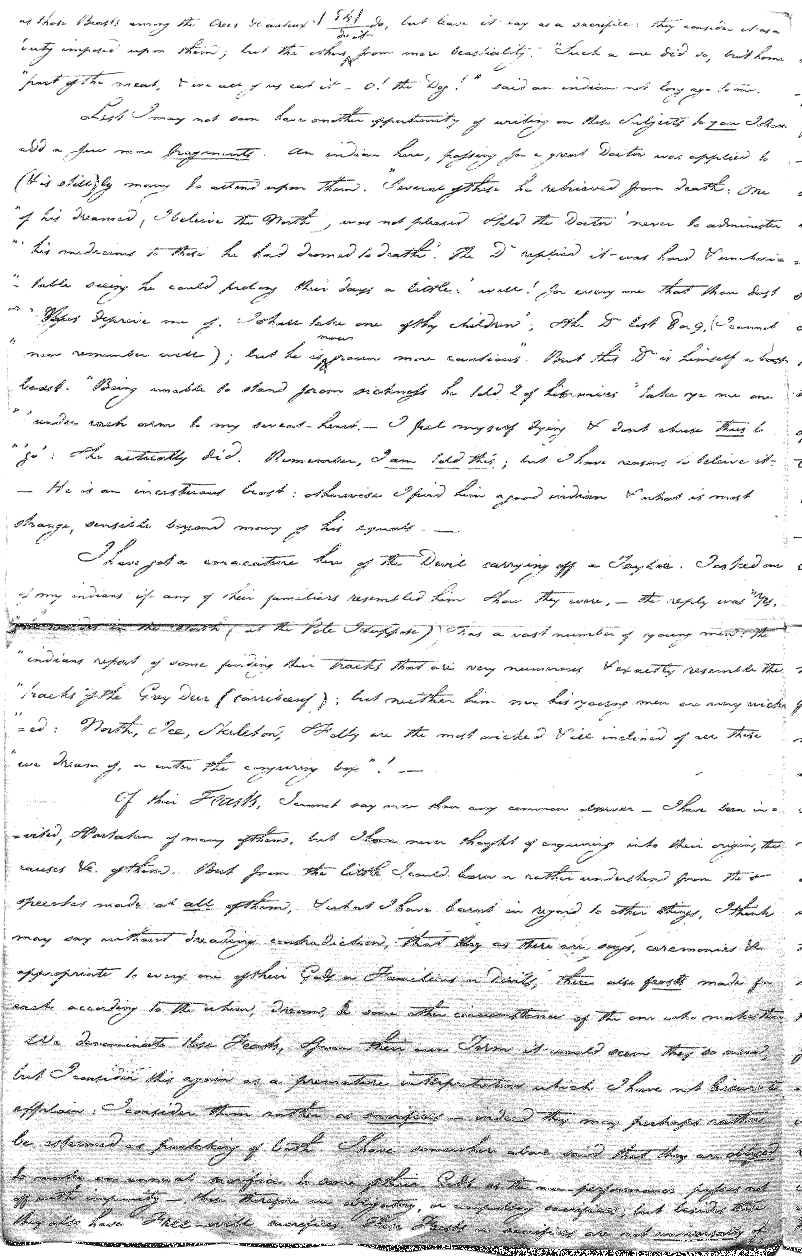 as those Beasts among the Crees & Sauteux do, but leave it lay as a sacrifice: they consider it as a
duty imposed upon them; but the others from more beastiality. "Such a one did so, but home
"part of the meat, & we all of us eat it – O! the Dog!" said an indian not long ago to me.
Lest I may not soon have another opportunity of writing on these Subjects to you I shall
add a few more fragments. An indian here, passing for a great Doctor was applied to
(& is still) by many to attend upon them. "Several of these he retrieved from death: one
"of his dreamed, I beleive the North, was not pleased & told the Doctor 'never to administer
"'his medecines to those he had doomed to death'. The Dr. replied it was hard & uncharie=
"=table seeing he could prolong their days a little: 'well! for every one that thou dost
"'thus deprive me of, I shall take one of thy children'; & the Dr. lost 8 or 9, (I cannot
"now remember well); but he is now grown more cautious". But this Dr. is himself a
beast. "Being unable to stand from sickness he told 2 of his wives "take ye me one
"'under each arm to my sweet-heart.– I feel myself dying & don't chuse thus to
"'go': & he actually did. Remember, I am told this; but I have reasons to beleive it–
– He is an incestuous beast: otherwise I find him a good indian & what is most
strange, sensible beyond many of his equals. —
I have got a caracature here of the Devil carrying off a Taylor. I asked one
of my indians if any of their familiars resembled him & how they were,– the reply was "Yes,
in the North (at the Pole I suppose) & has a vast number of young men: the
"indians report of some finding their tracks that are very numerous & exactly resemble the
"tracks of the Grey Deer (carribeouf); but neither him nor his young men are very wick
"=ed: North, Ice, Skeleton, & Folly are the most wicked & ill inclined of all those
"we dream of, or enter the conjuring box"! —
Of their Feasts, I cannot say more than any common observer – I have been in=
=vited, & partaken of many of them, but I have never thought of enquiring into their origin, the
causes &c. of them. But from the little I could learn or rather understand from the
speeches made at all of them, & what I have learnt in regard to other things, I think I
may say without dreading contradiction, that they as there are songs, ceremonies &c
appropriate to every one of their Gods or Familiars or Devils, there also feasts made for
each according to the whim, dream, or some other circumstance of the one who makes them
We denominate these Feasts, & from their own Term it would seem they so mean,
but I consider this again as a premature interpretation which I have not leisure to
explain: I consider them rather as sacrifices – indeed they may perhaps rather
be esteemed as partaking of both. I have somewhere above said that they are obliged
to make an annual sacrifice to some of their Gods as the non-performance passes not
off with impunity – these therefore are obligatory, or compulsory sacrifices; but besides these
they also have Free-will sacrifices. Their Feasts or sacrifices are not universally of